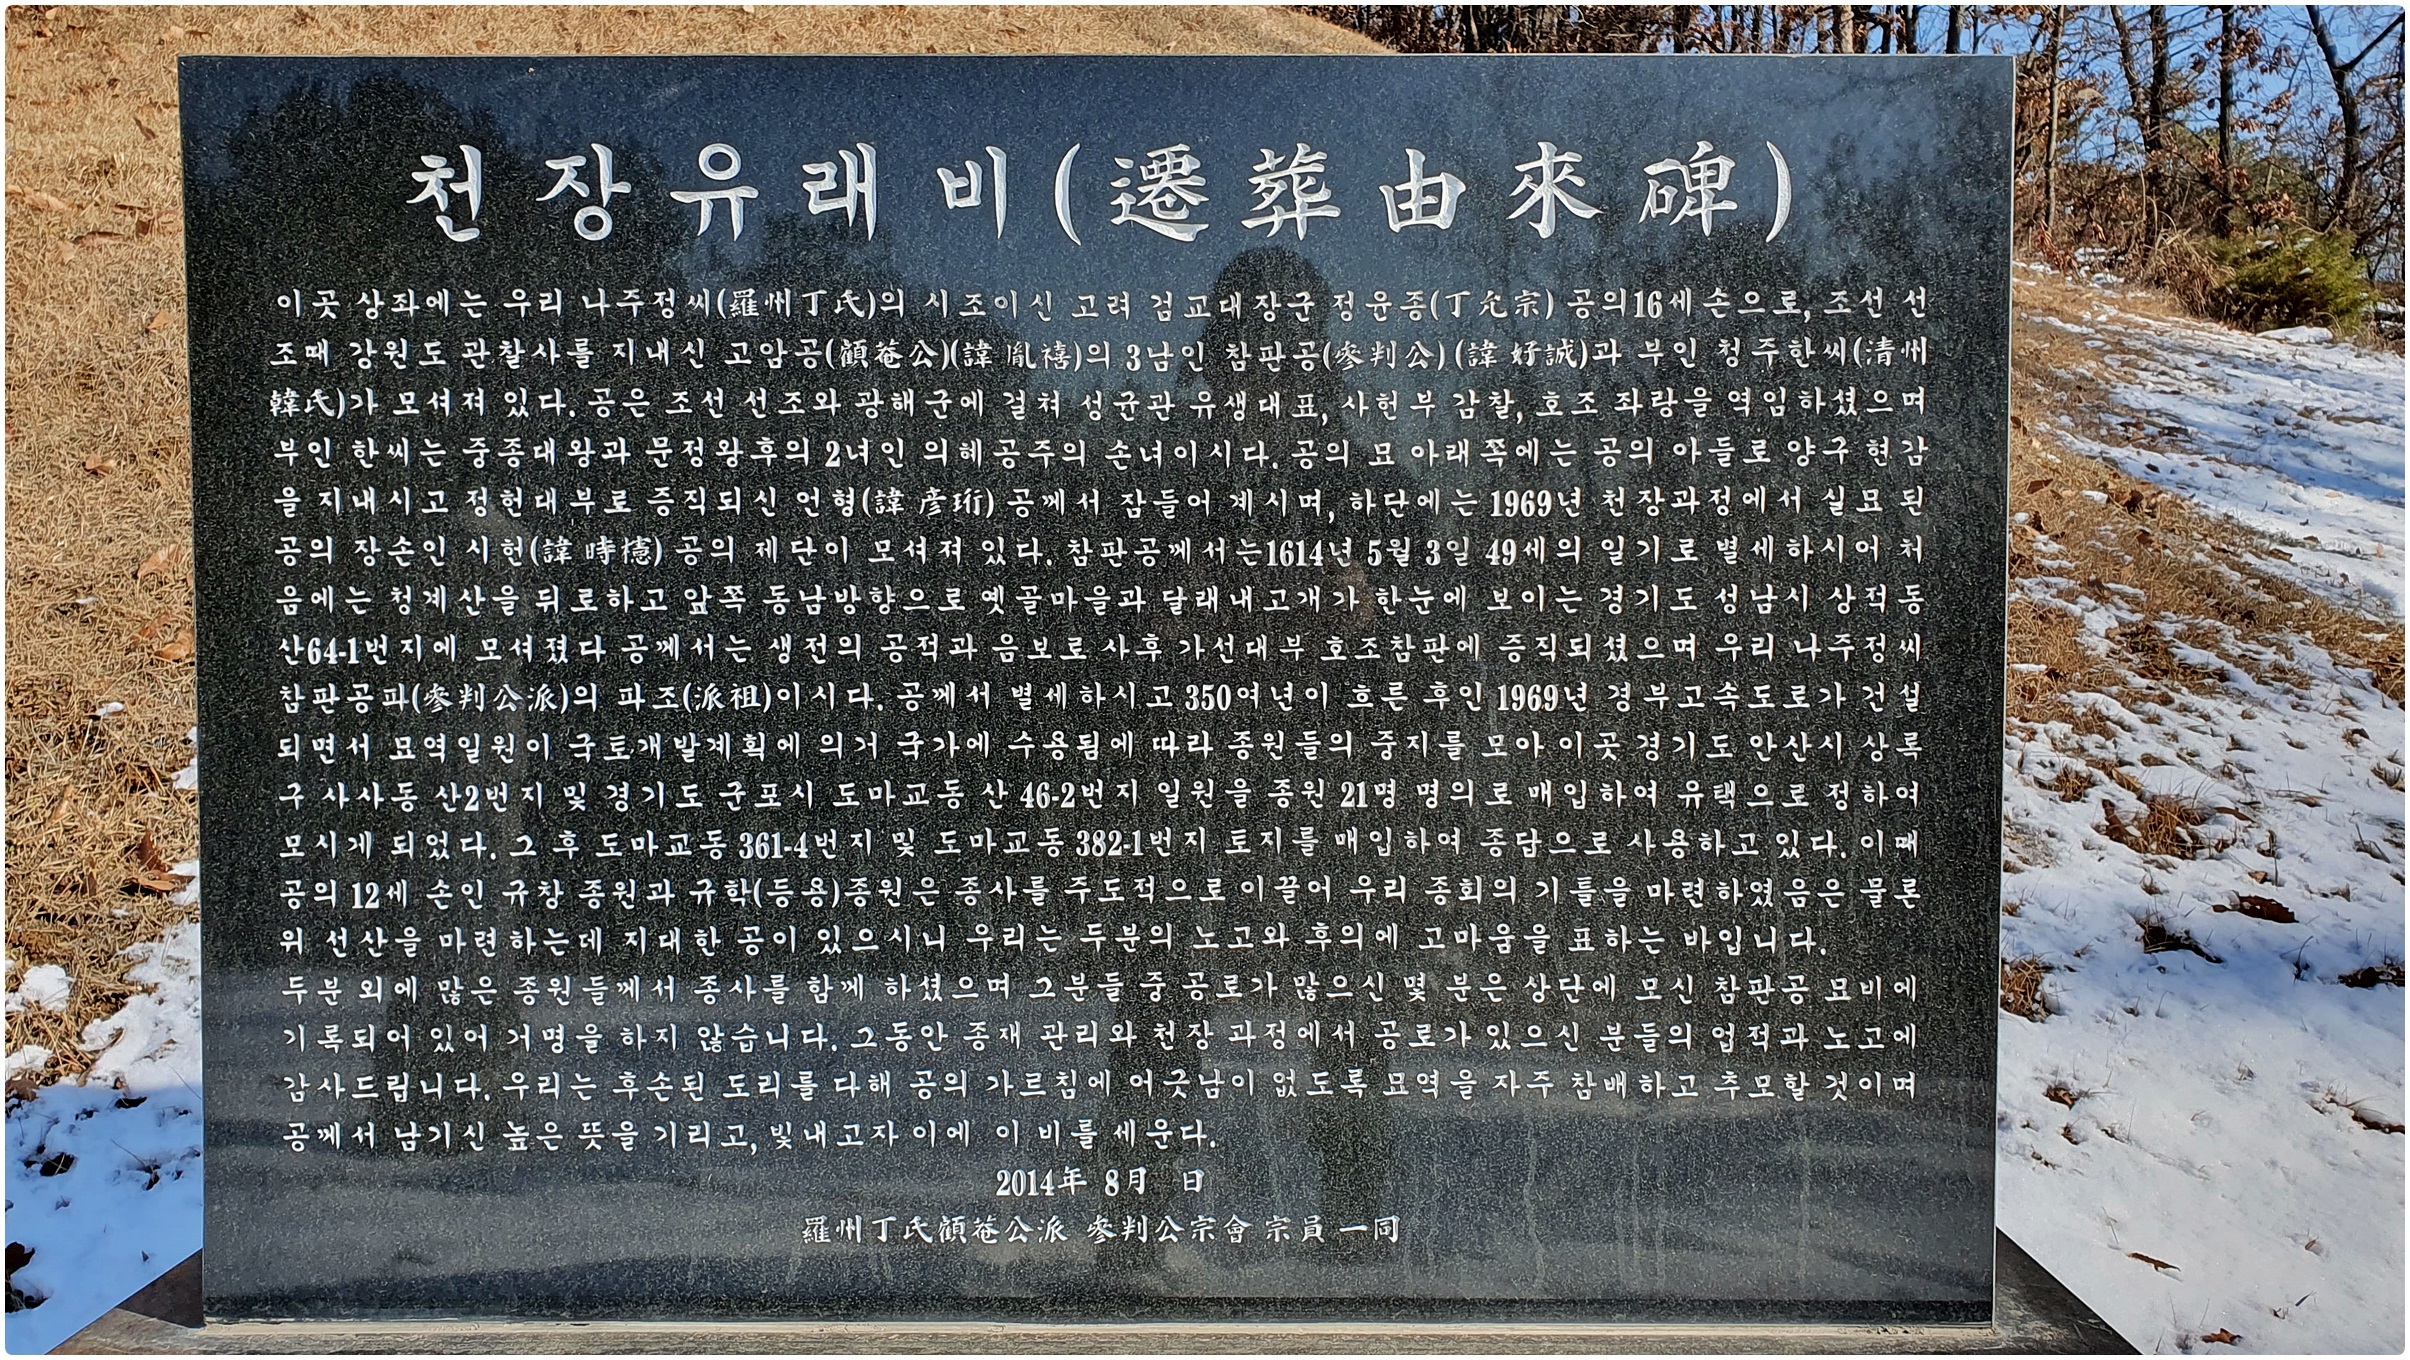 천장유래비(遷葬由來碑)
이곳 상좌에는 우리 나주정씨(羅州丁氏)의 시조이신 고려 검교대장군 정윤종(丁允宗) 공의16세손으로, 조선 선
조때 강원도 관찰사를 지내신 고암공(顧菴公)(諱 胤禧)의 3남인 참판공(參判公)(諱 好誠)과 부인 청주한씨(清州
韓氏)가 모셔져 있다. 공은 조선 선조와 광해군에 걸쳐 성균관 유생대표, 사헌부 감찰, 호조 좌랑을 역임하셨으며
부인 한씨는 중종대왕과 문정왕후의 2녀인 의혜공주의 손녀이시다. 공의 묘 아래쪽에는 공의 아들로 양구 현감
을 지내시고 정헌대부로 증직되신 언형(諱 彦珩) 공께서 잠들어 계시며, 하단에는 1969년 천장과정에서 실묘 된
공의 장손인 시헌(諱 時櫶) 공의 제단이 모셔져 있다. 참판공께서는1614년 5월 3일 49세의 일기로 별세하시어 처
음에는 청계산을 뒤로하고 앞쪽 동남방향으로 옛골마을과 달래내고개가 한눈에 보이는 경기도 성남시 상적동
산64-1번지에 모셔졌다 공께서는 생전의 공적과 음보로 사후 가선대부 호조참판에 증직되셨으며 우리 나주정씨
참판공파(參判公派)의 파조(派祖)이시다. 공께서 별세하시고 350여년이 흐른 후인 1969년 경부고속도로가 건설
되면서 묘역일원이 국토개발계획에 의거 국가에 수용됨에 따라 종원들의 중지를 모아 이곳 경기도 안산시 상록
구 사사동 산2번지 및 경기도 군포시 도마교동 산 46-2번지 일원을 종원 21명 명의로 매입하여 유택으로 정하여
모시게 되었다. 그 후 도마교동 361-4번지 및 도마교동 382-1번지 토지를 매입하여 종답으로 사용하고 있다. 이때
공의 12세 손인 규창 종원과 규학(등용)종원은 종사를 주도적으로 이끌어 우리 종회의 기틀을 마련하였음은 물론
위 선산을 마련하는데 지대한 공이 있으시니 우리는 두분의 노고와 후의에 고마움을 표하는 바입니다.
두분 외에 많은 종원들께서 종사를 함께 하셨으며 그분들 중 공로가 많으신 몇 분은 상단에 모신 참판공 묘비에
기록되어 있어 거명을 하지 않습니다. 그동안 종재 관리와 천장 과정에서 공로가 있으신 분들의 업적과 노고에
감사드립니다. 우리는 후손된 도리를 다해 공의 가르침에 어긋남이 없도록 묘역을 자주 참배하고 추모할 것이며
공께서 남기신 높은 뜻을 기리고, 빛내고자 이에 이 비를 세운다.
2014年 8月 日
羅州丁氏顧菴公派 參判公宗會 宗員 一同